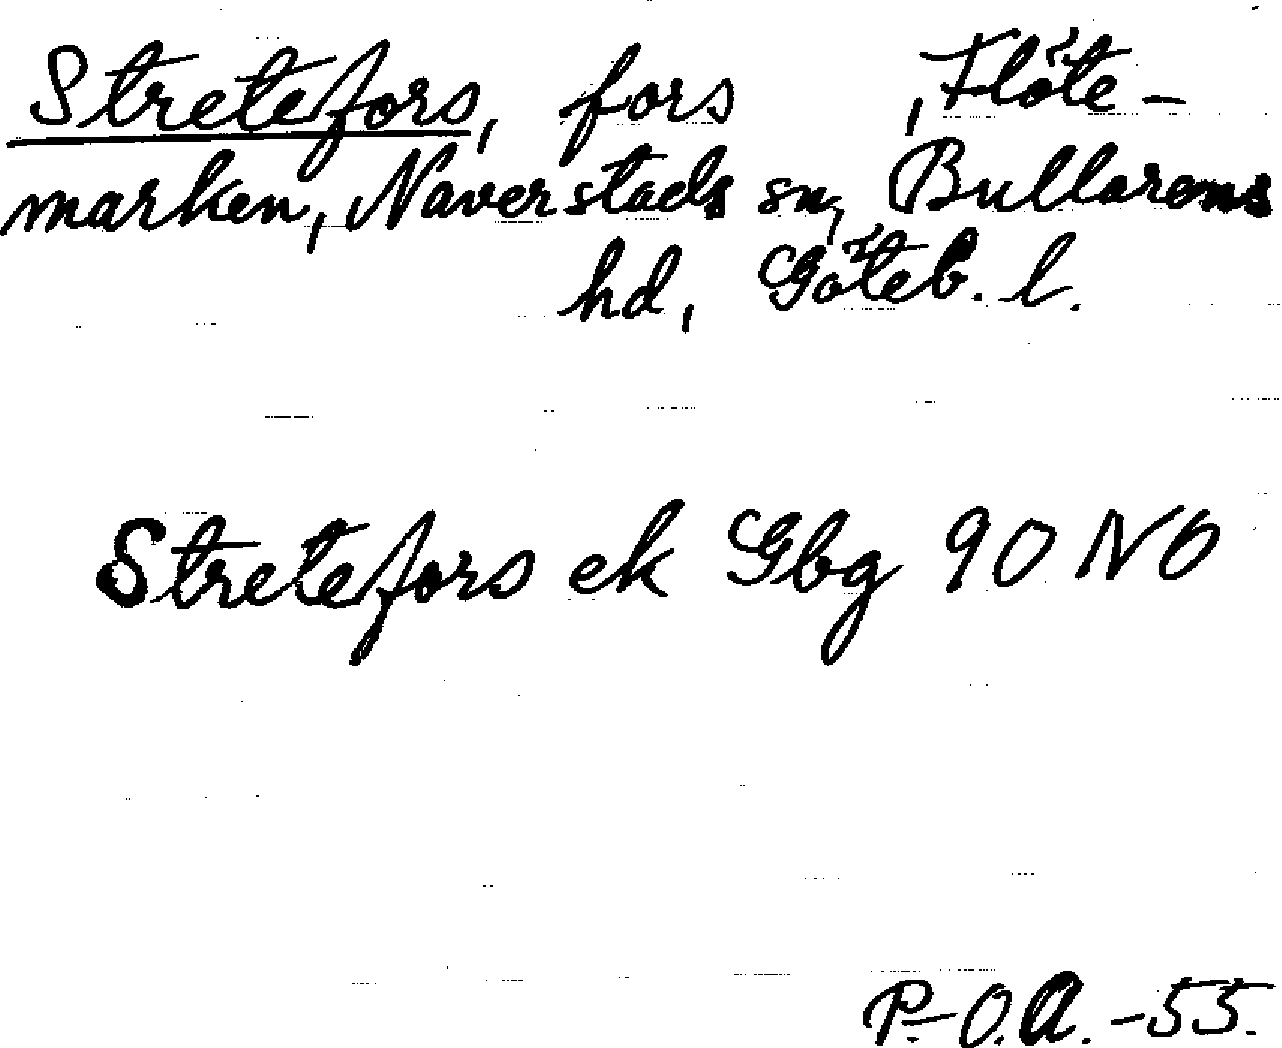 Stretefors, fors , Flöte-
marken, Naverstads sn, Bullarens
hd, Göteb. l.
Stretefors ek Gbg 90 NO
P-O.A.-55.